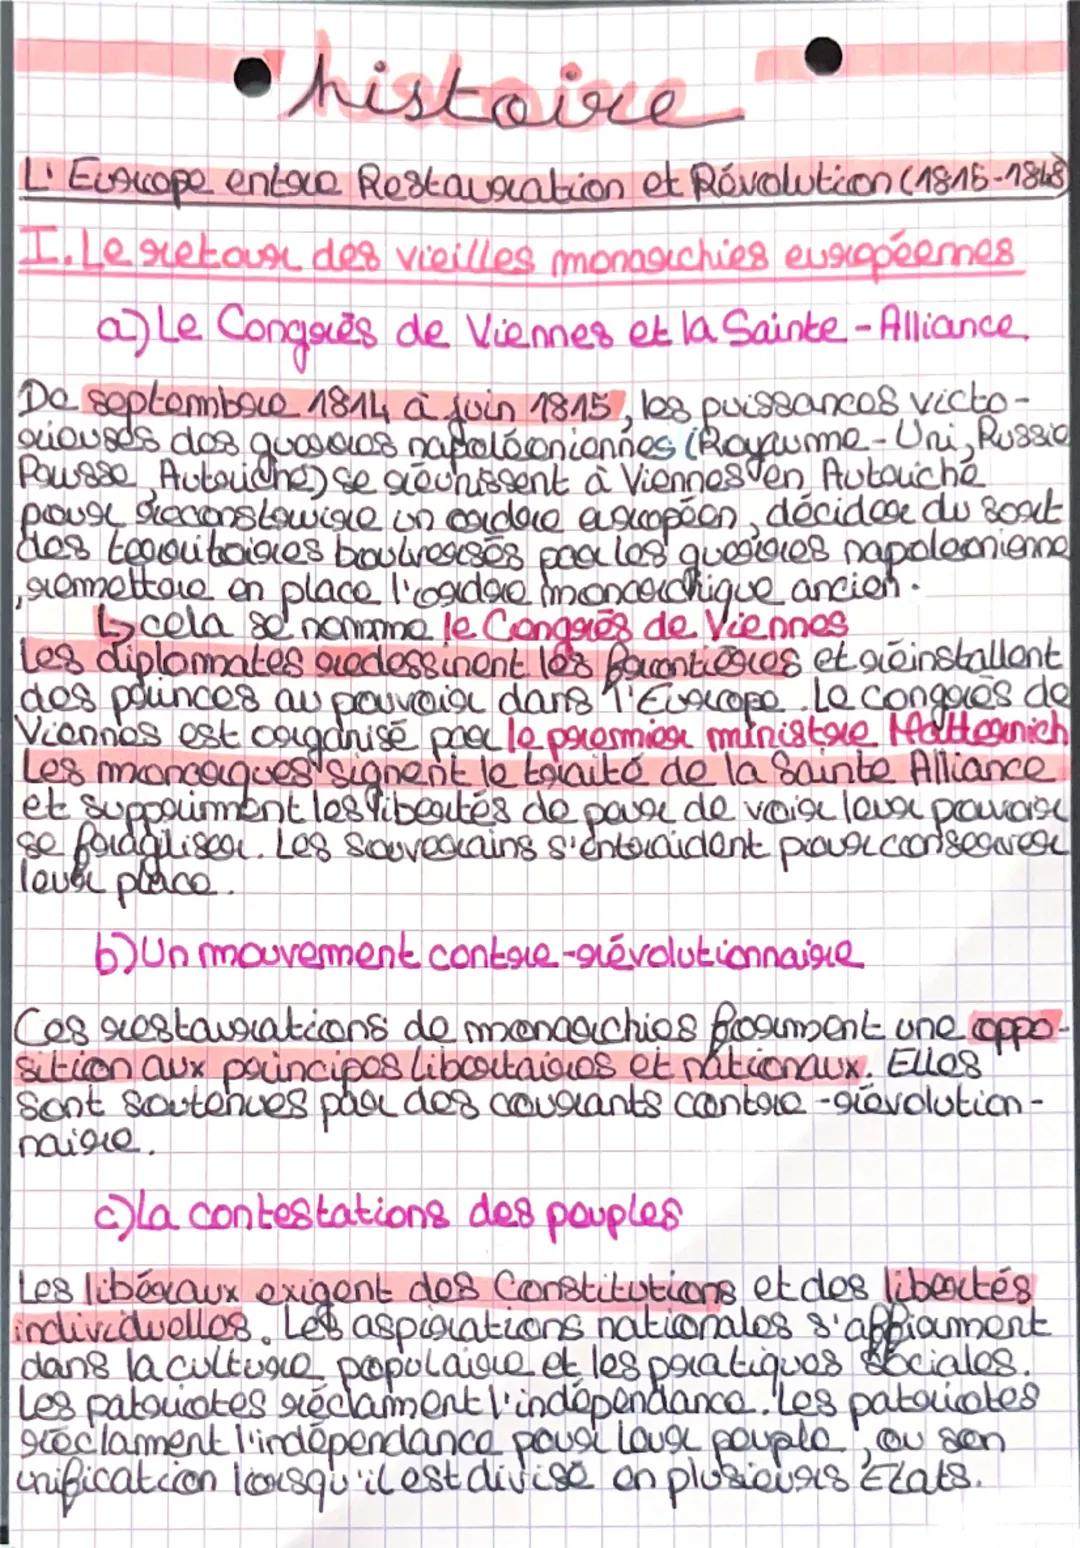 histoire
L'Europe entre Restauration et Révolution (1815-1848)
I. Le retour des vieilles monarchies européennes
a) Le Congrès de Viennes et la Sainte-Alliance
De septembre 1814 à juin 1815, les puissances victo-
rieuses des guerres napoléoniennes (Royaume-Uni, Russie
Prusse, Autriche) se réunissent à Viennes en Autriche
pour reconstruire un ordre européen, décider du sort
des territoires boulversés par les guerres napoleonienne
, remettre en place l'ordre monarchique ancien.
↳ cela se nomme le Congrès de Viennes
Les diplomates redessinent les frontières et réinstallent
des princes au pouvoir dans l'Europe. Le congrès de
Viennes est organisé par le premier ministre Metternich
Les monarques signent le traité de la Sainte Alliance
et suppriment les libertés de peur de voir leur pouvoir
se fragiliser. Les souverains s'entraident pour conserver
leur place.
b) Un mouvement contre-révolutionnaire
Ces restaurations de monarchies forment une oppo-
sition aux principes libertaires et nationaux. Elles
sont soutenues par des courants contre-révolution-
naire.
c) La contestations des peuples
Les libéraux exigent des Constitutions et des libertés
individuelles. Les aspirations nationales s'affirment
dans la culture populaire et les pratiques sociales.
Les patriotes réclament l'indépendance. Les patriotes
réclament l'indépendance pour leur peuple, ou son
unification lorsqu'il est divisé en plusieurs États.